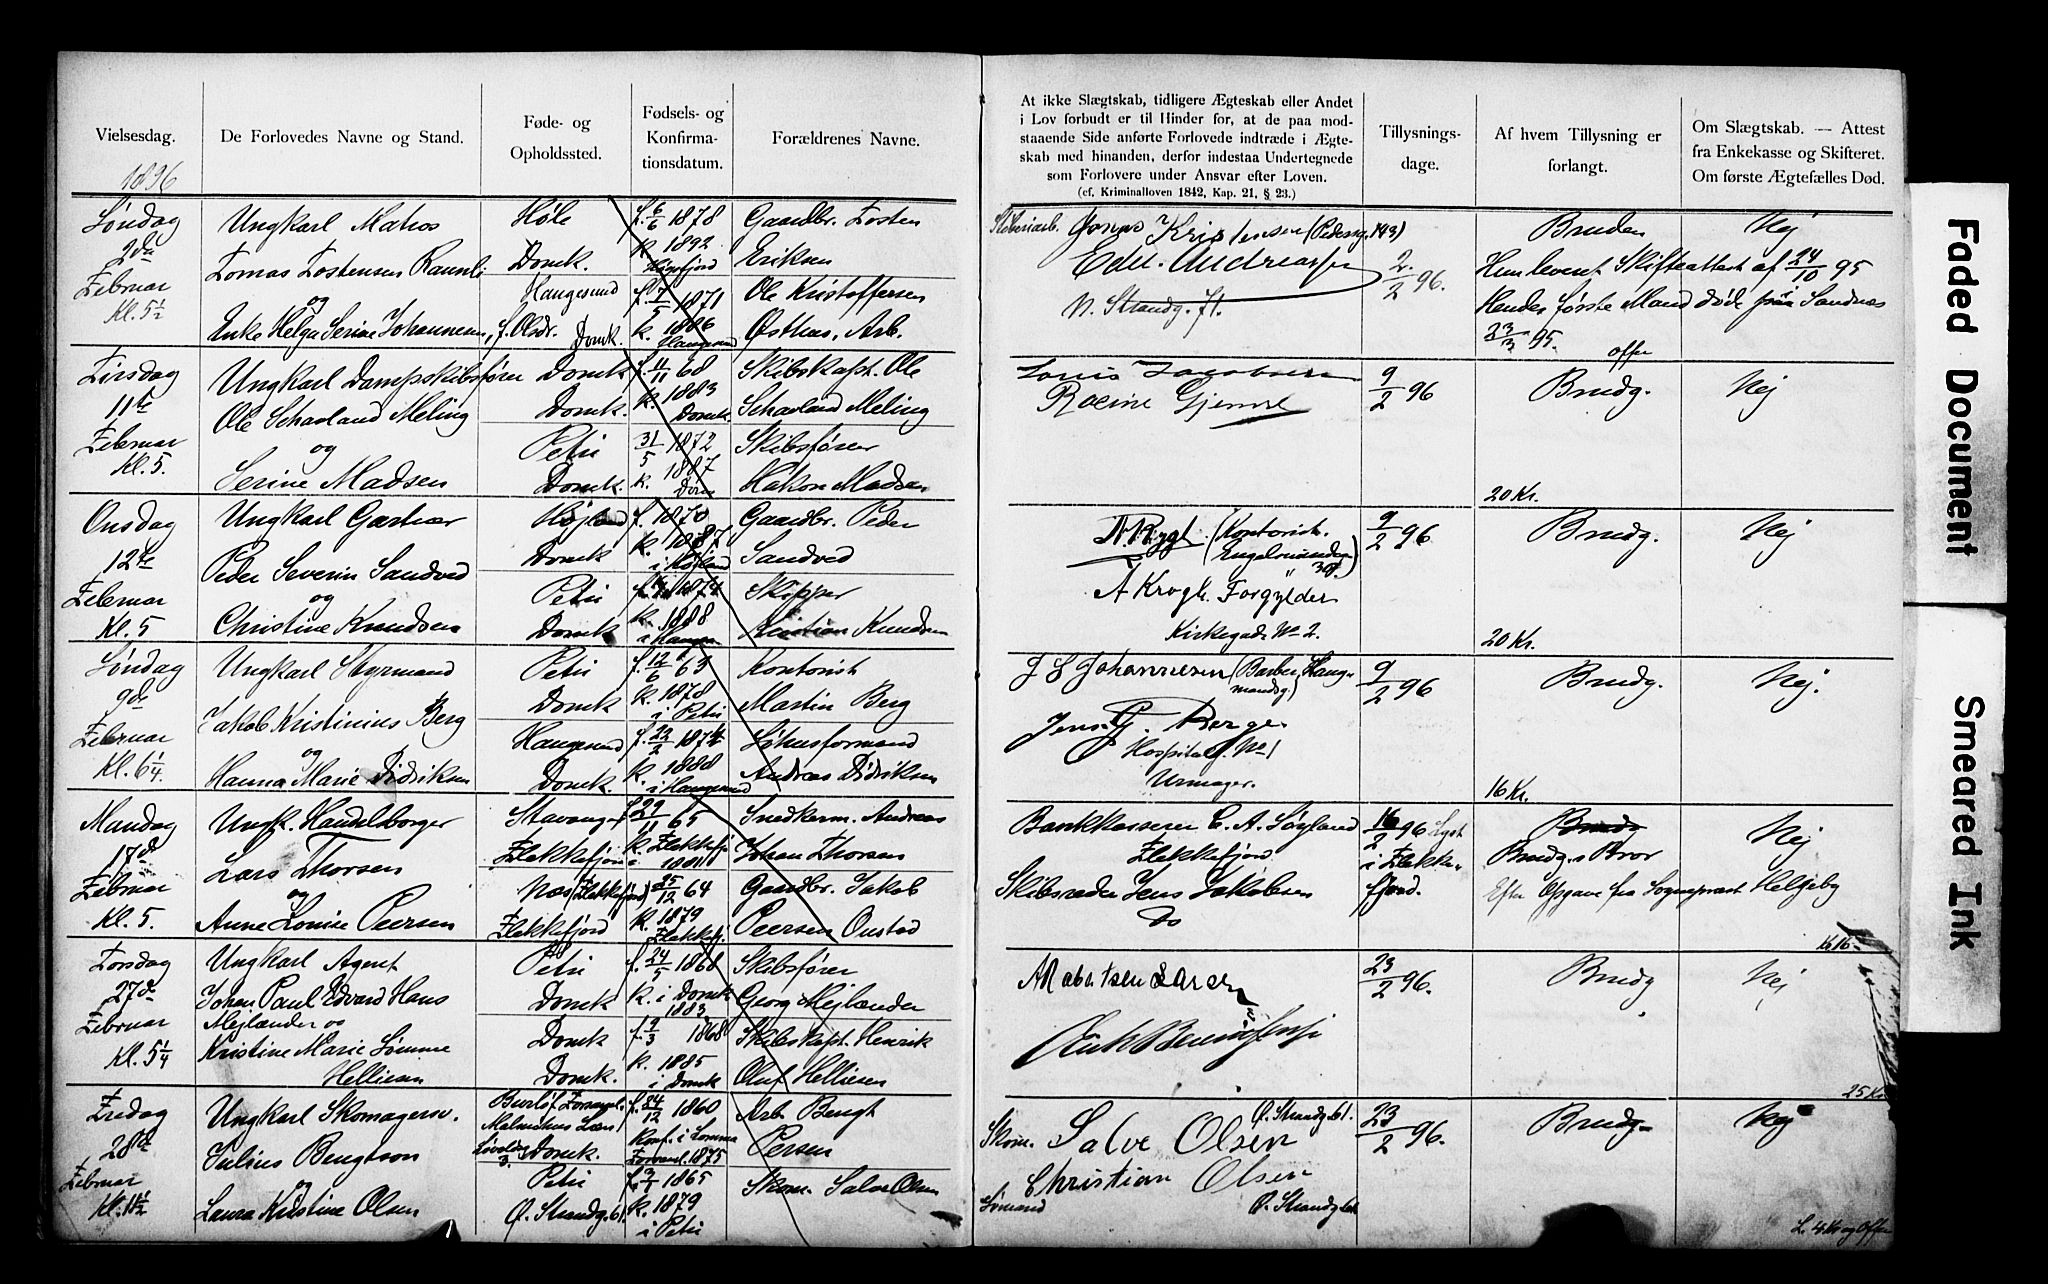 Vielsesdag.
De Forlovedes Navne og Stand.
Føde- og
Opholdssted.
Fødsels- og
Konfirma-
tionsdatum.
Forældrenes Navne.
1896
Søndag
2den
Februar
Kl. 5½
Ungkarl Matros
Tomas Tostensen
og
Enke Helga Serine Johannesen, f. Olsdr.
Høle
Domk.
Haugesund
Domk.
f. 6/6 1878
k. 1892
Høgsfjord
f. 7/5 1871
k. 1886
Haugesund
Gaardbr. Tosten
Eriksen
Ole Kristoffersen
Østhus, Arb.
Tirsdag
11te
Februar
Kl. 5.
Ungkarl Dampskibsfører
Ole Schavland Meling
og
Serine Madsen
Domk.
Domk.
Petri
Domk.
f. 4/11 68
k. 1883
Domk.
31/5 1872
k. 1887
Dom
Skibskapt. Ole
Schavland Meling
Skibsfører
Håkon Madsen
Onsdag
12te
Februar
Kl. 5
Ungkarl Gartner
Peder Severin Sandved
og
Christine Knudsen
Højland
Domk
Petri
Domk
f. 1870
k. 1887
i Højland
1874
k. 1888
Gaardbr. Peder
Sandved
Skipper
Kristian Knudsen
Søndag
9de
Februar
Kl. 6¼.
Ungkarl Styrmand
Jakob Kristinius Berg
og
Hanna Marie Didriksen
Petri
Domk
Haugesund
Domk.
f. 12/6 63
k. 1878
i Petri
f. 22/2 1874
k. 1888
i Haugesund
Kontorist
Martin Berg
Andreas Didriksen
Mandag
17de
Februar
Kl. 5.
Ungk. Handelsborger
Lars Thorsen
og
Anne Louise Peersen
Stavanger
Flekkefjord
Næs (Flekkefjord)
Flekkefjord
f. 29/11 65
k. Flekkefj.
1881
25/12 64
k. 1879
Flekkefj.
Snedkerm. Andreas
Johan Thorsen
Gaardbr. Jakob
Peersen Onstad
Torsdag
27de
Februar
Kl. 5¼
Ungkarl Agent
Johan Paul Edvard Hans
Mejlænder og
Kristine Marie Sømme
Helliesen
Petri
Domk
Domk
Domk.
f. 24/5 1868
k. i Domk
1883
f. 9/3 1868
k. 1885
i Domk
Skibsfører
Georg Mejlænder
Skibskapt. Henrik
Oluf Helliesen
Fredag
28de
Februar
Kl. 11½
Ungkarl Skomagersv.
Julius Bengtson
og
Laura Kristine Olsen
Malmøhus Læn
Domk.
Petri
Ø. Strandg. 61.
f. 24/12 1860
konf. i Lomma
1875
f. 3/2 1865
k. 1879
i Petri
Arb. Bengt
Persen
Skom. Salve Olsen
At ikke Slægtskab, tidligere Ægteskab eller Andet
i Lov forbudt er til Hinder for, at de paa mod-
staaende Side anførte Forlovede indtræde i Ægte-
skab med hinanden, derfor indestaa Undertegnede
som Forlovere under Ansvar efter Loven.
(cf. Kriminalloven 1842, Kap. 21, § 23.)
Tillysnings-
dage.
Af hvem Tillysning er
forlangt.
Om Slægtskab. — Attest
fra Enkekasse og Skifteret.
Om første Ægtefælles Død.
Jonas Kristensen (Pedersg. 143)
Edu. Andreassen
N. Strandg. 71.
2/2 96.
Bruden
Nej
Hun levert Skifteattest af 24/10 95
Hendes første Mand døde i Sandnes
23/3 95.
offer
Louis Jacobsen
9/2 96
Brudg.
Nej
20 Kr.
(Kontorist.
A Krogh. Forgylder
Kirkegade No 2.
9/2 96
Brudg.
Nej
20 Kr.
J S Johannesen (Barber, Haug-
mandsg.)
Jens G. Berge
Hospitalg. No 1
Urmager.
9/2 96
Brudg.
Nej.
16 Kr.
Bankkasserer C. A. Søyland
Flekkefjord
Skibsreder Jens Jakobsen
Do
16/2 96 Lyst
i Flekke-
fjord.
Brudg
Brudg.s Bror
Nej
Efter Opgave fra Sogneprest Helgeby
Kr 16.
23/2 96.
Brudg
Nej
25 Kr.
Skom. Salve Olsen Ø. Strandg. 61.
Christian Olsen
Sømand
Ø. Strandg 61
23/2 96.
Brudg.
Nej
L. 4 Kr og Offer
Faded Document
Smeared Ink